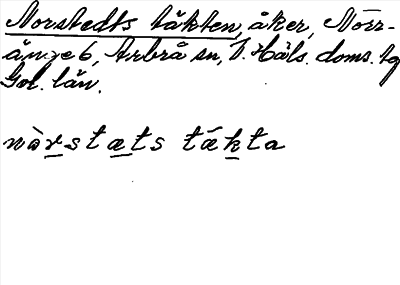 Norstedts täkten, åker, Norr-
änge 6, Arbrå sn, V. Häls. doms. tg
Gvl. län.
nàrstæts tækta